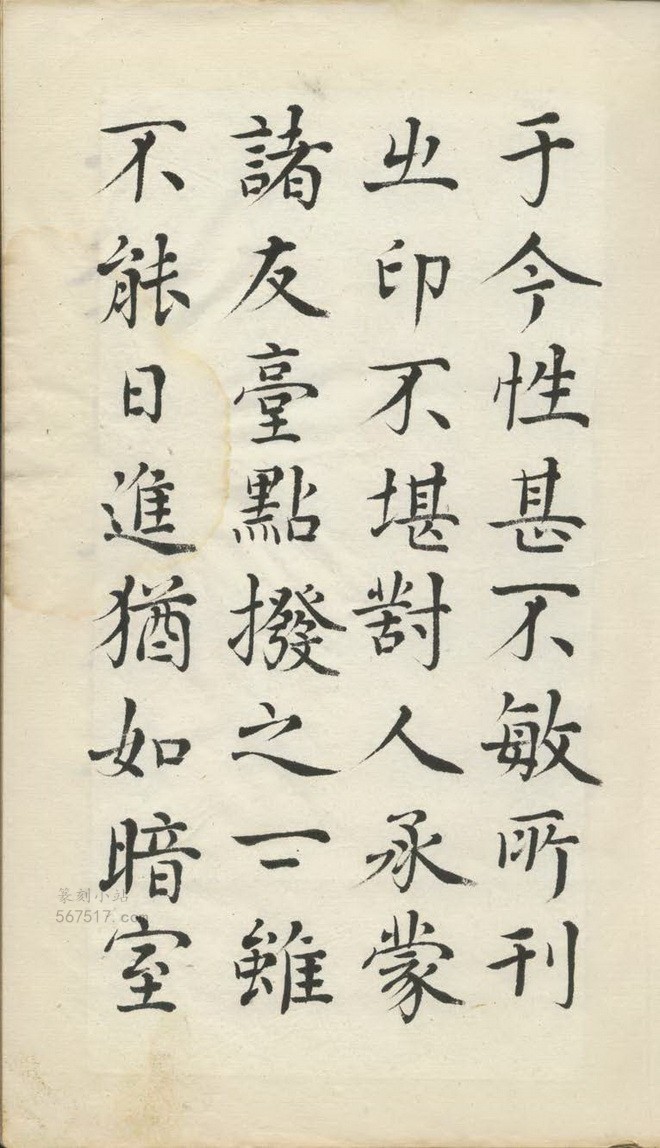 于今性甚不敏所刊
之印不堪對人承蒙
諸友臺點撥之一二雖
不能日進猶如暗室
篆刻小站
567517.com